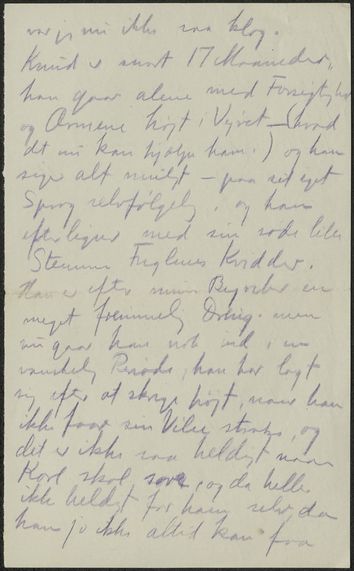 var jo nu ikke saa klog.
Knud er snart 17 Maaneder,
han gaar alene med Forsigtighed
og Armene højt i Vejret – hvad
det nu kan hjælpe ham.) og han
siger alt muligt – paa sit eget
Sprog selvfølgelig, og han
efterligner med sin søde lille
Stemme Fuglenes Kvidder.
Han er efter mine Begreber en
meget fornuftig Dreng, men
nu gaar han nok ind i en
vanskelig Periode, han har lagt
sig efter at skrige højt, naar han
ikke faar sin Vilje straks, og
det er ikke saa heldigt naar
Karl skal sove, og da heller
ikke heldigt for ham selv, da
han jo ikke altid kan faa